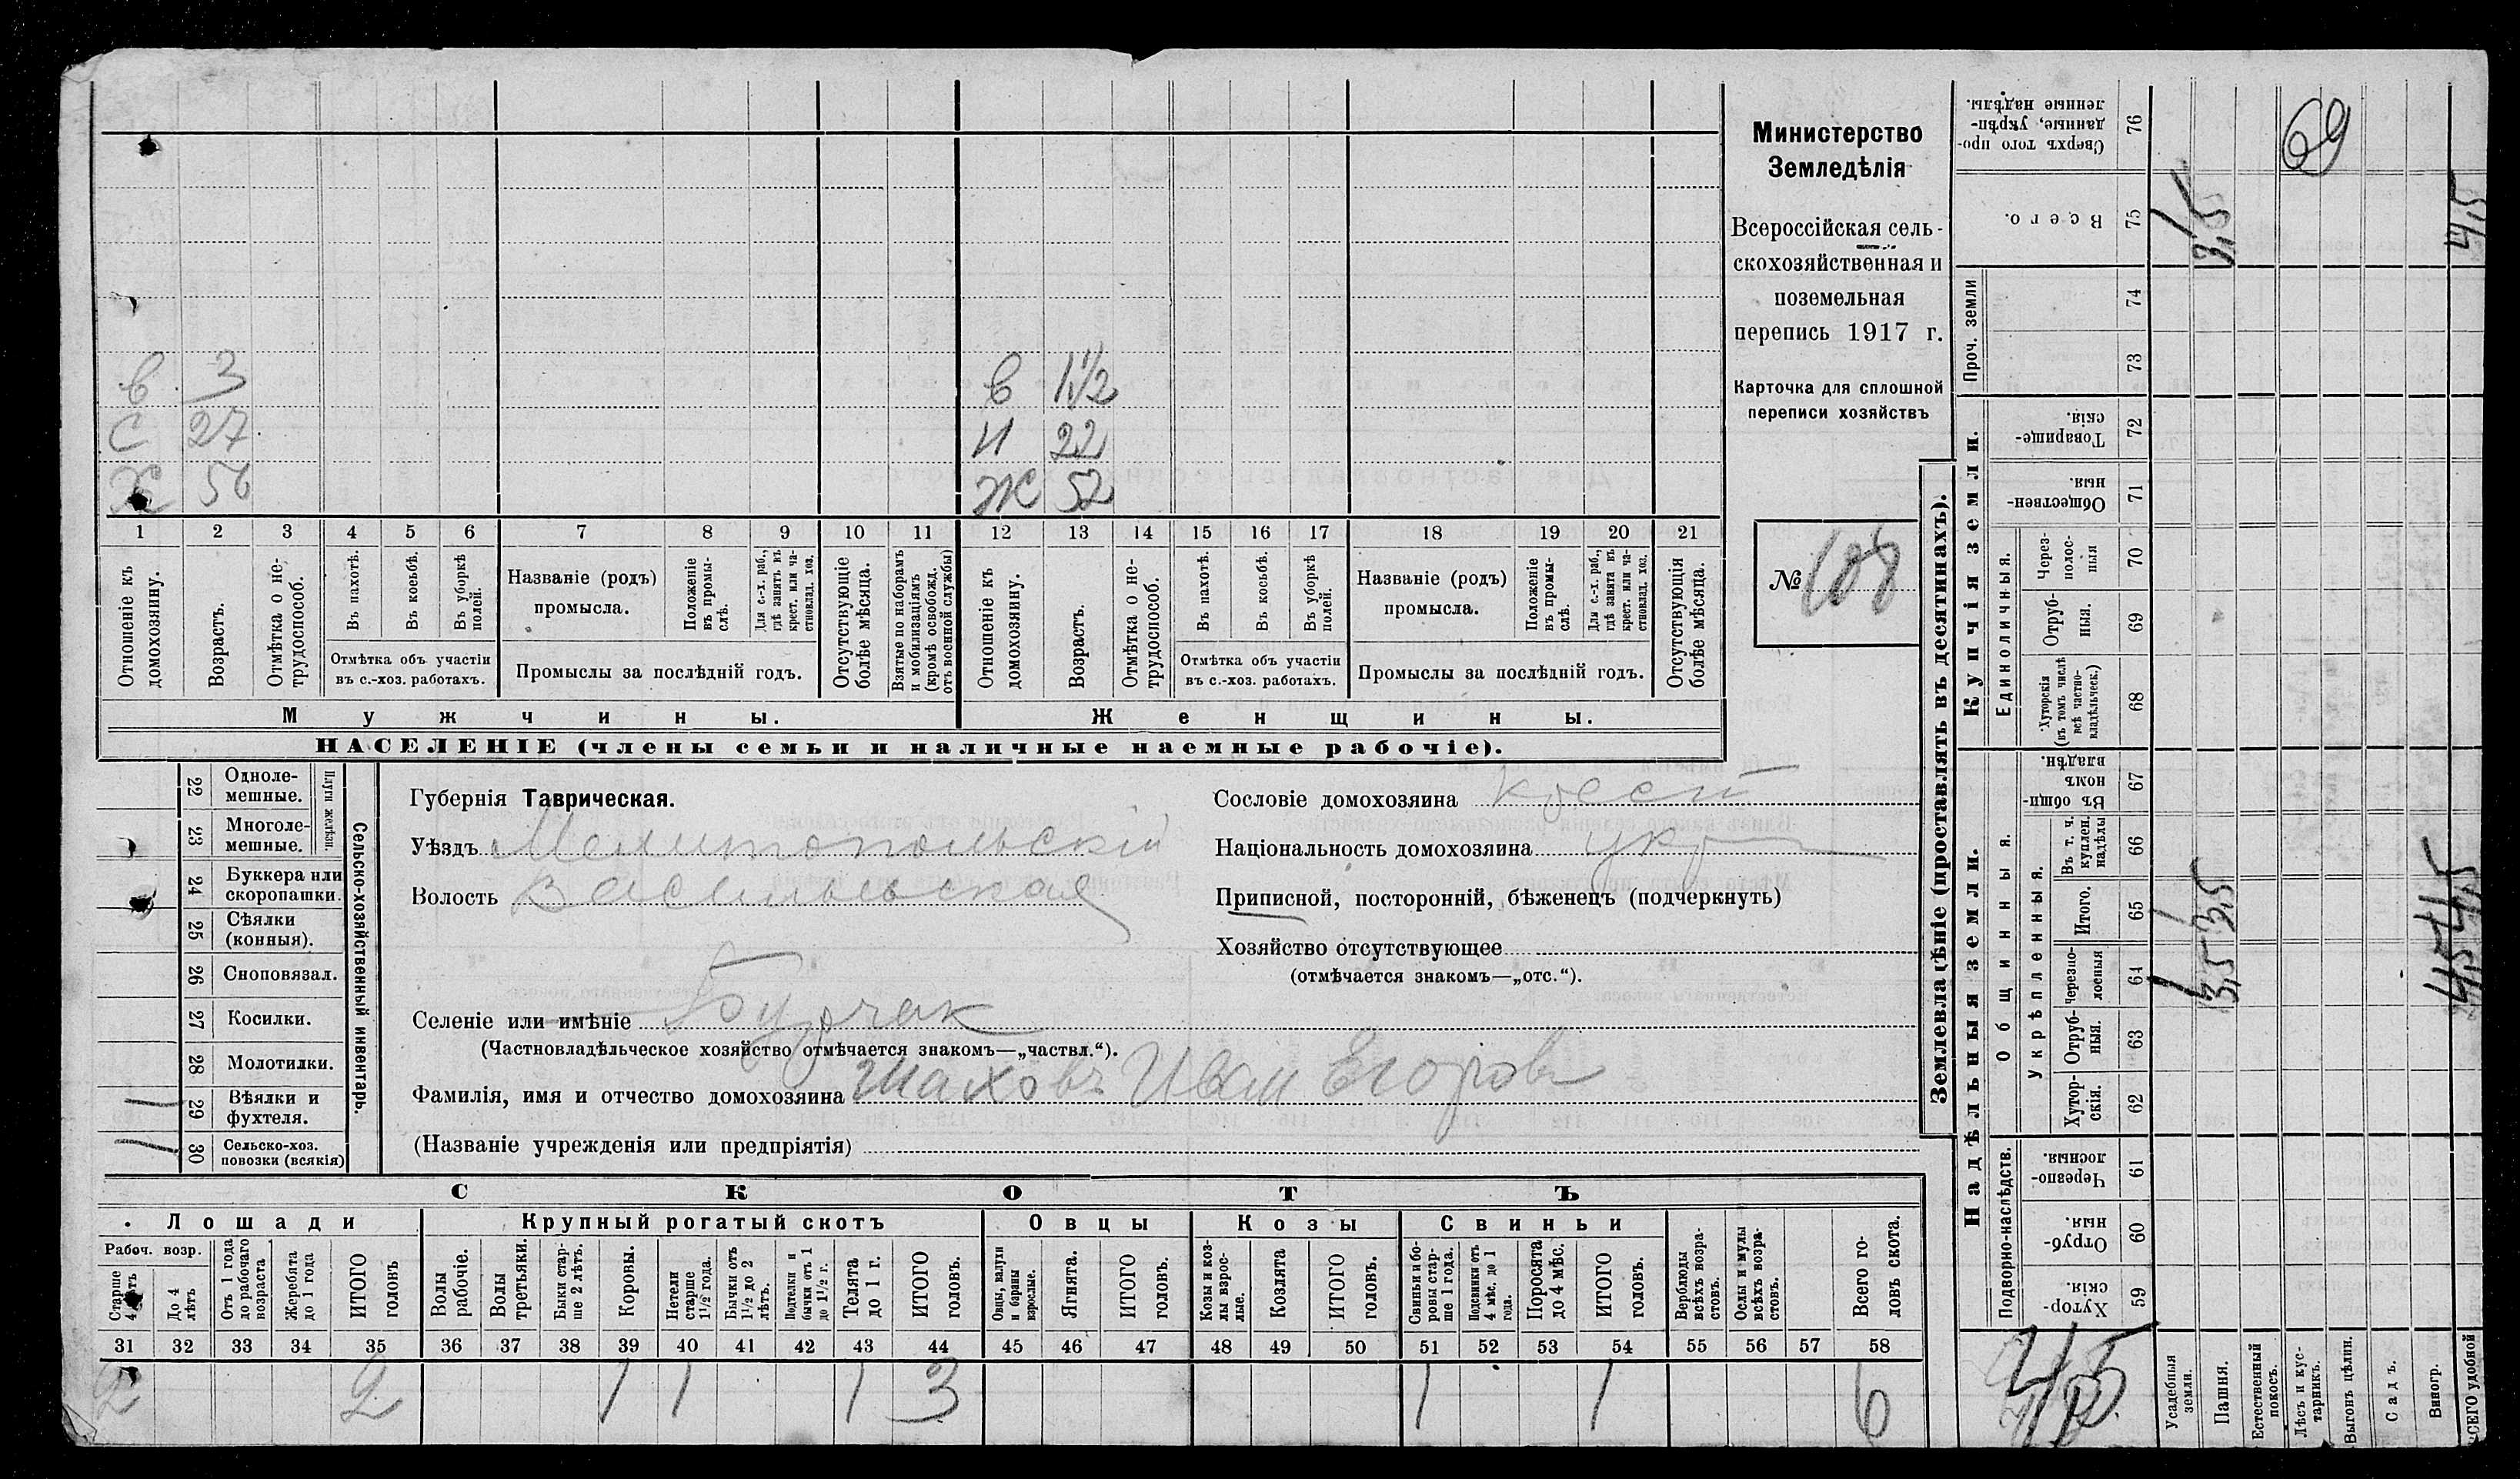 Министерство
Земледѣлія
Всероссійская сель-
скохозяйственная и
поземельная
перепись 1917 г.
Карточка для сплошной
переписи хозяйствъ
№ 108
69
в 3 в 1½
с 27 н 22
х 56 ж 52
1 2 3 4 5 6 7 8 9 10 11 12 13 14 15 16 17 18 19 20 21
Отношеніе къ домохозяину.
Возрастъ.
Отмѣтка о не-трудоспособ.
Въ пахотѣ.
Въ косьбѣ.
Въ уборкѣ полей.
Отмѣтка объ участіи
въ с.-хоз. работахъ.
Названіе (родъ)
промысла.
Положеніе въ промы-слѣ.
Для с.-х. раб., гдѣ занятъ въ крест. или ча-стновлад. хоз.
Промыслы за послѣдній годъ.
Отсутствующіе болѣе мѣсяца.
Взятые по наборамъ и мобилизаціямъ (кромѣ освобожд. отъ военной службы)
Отношеніе къ домохозяину.
Возрастъ.
Отмѣтка о не-трудоспособ.
Въ пахотѣ.
Въ косьбѣ.
Въ уборкѣ полей.
Отмѣтка объ участіи
въ с.-хоз. работахъ.
Названіе (родъ)
промысла.
Положеніе въ промы-слѣ.
Для с.-х. раб., гдѣ занята въ крест. или ча-стновлад. хоз.
Промыслы за послѣдній годъ.
Отсутствующія болѣе мѣсяца.
Мужчины. Женщины.
НАСЕЛЕНІЕ (члены семьи и наличные наемные рабочіе).
Сельско-хозяйственный инвентарь.
Плуги желѣзн.
22 Одноле-мешные.
23 Многоле-мешные.
24 Буккера или скоропашки.
25 Сѣялки (конныя).
26 Сноповязал.
27 Косилки.
28 Молотилки.
29 Вѣялки и фухтеля. 1
30 Сельско-хоз. повозки (всякія) 1
Губернія Таврическая.
Уѣздъ Мелитопольскій
Волость Васильевская
Селеніе или имѣніе Бурчак
(Частновладѣльческое хозяйство отмѣчается знакомъ—„частвл.“).
Фамилія, имя и отчество домохозяина Шаховъ Иван Егоров
(Названіе учрежденія или предпріятія)
Сословіе домохозяина крест
Національность домохозяина укр
Приписной, посторонній, бѣженецъ (подчеркнуть)
Хозяйство отсутствующее
(отмѣчается знакомъ—„отс.“).
СКОТЪ
Лошади Крупный рогатый скотъ Овцы Козы Свиньи
Рабоч. возр.
Старше 4 лѣтъ
До 4 лѣтъ
Отъ 1 года до рабочаго возраста
Жеребята до 1 года
ИТОГО головъ
Волы рабочіе.
Волы третьяки.
Быки стар-ше 2 лѣтъ.
Коровы.
Нетели старше 1½ года.
Бычки отъ 1½ до 2 лѣтъ.
Подтелки и бычки отъ 1 до 1½ г.
Телята до 1 г.
ИТОГО головъ.
Овцы, валухи и бараны взрослые.
Ягнята.
ИТОГО головъ.
Козы и коз-лы взрос-лые.
Козлята
ИТОГО головъ.
Свиньи и бо-ровы стар-ше 1 года.
Подсвинки отъ 4 мѣс. до 1 года.
Поросята до 4 мѣс.
ИТОГО головъ.
Верблюды всѣхъ возра-стовъ.
Ослы и мулы всѣхъ возра-стовъ.
Всего го-ловъ скота.
31 32 33 34 35 36 37 38 39 40 41 42 43 44 45 46 47 48 49 50 51 52 53 54 55 56 57 58
2 2 1 1 1 3 1 1 6
Землевладѣніе (проставлять въ десятинахъ).
Купчія земли.
Надѣльныя земли.
Единоличныя.
Общинныя.
Укрѣпленныя.
Подворно-наслѣдств.
Проч. земли
Сверхъ того про-данные, укрѣп-ленные надѣлы. 76
Всего. 75
74
73
Товарище-скія 72
Обществен-ныя. 71
Через-полос-ныя 70
Отруб-ныя. 69
Хуторскія (въ томъ числѣ всѣ частно-владѣльческ.) 68
Въ общи-номъ владѣн. 67
Въ т. ч. куплен. надѣлы 66
Итого. 65
Черезпо-лосныя 64
Отруб-ныя. 63
Хутор-скія. 62
Черезпо-лосныя. 61
Отруб-ныя. 60
Хутор-скія 59
Усадебныя земли.
Пашня.
Естественный покосъ.
Лѣсъ и кус-тарникъ.
Выгонъ цѣлин.
Садъ.
Виногр.
ВСЕГО удобной
1 1 1
3,5 3,5 3,5
4,5 4,5 4,5